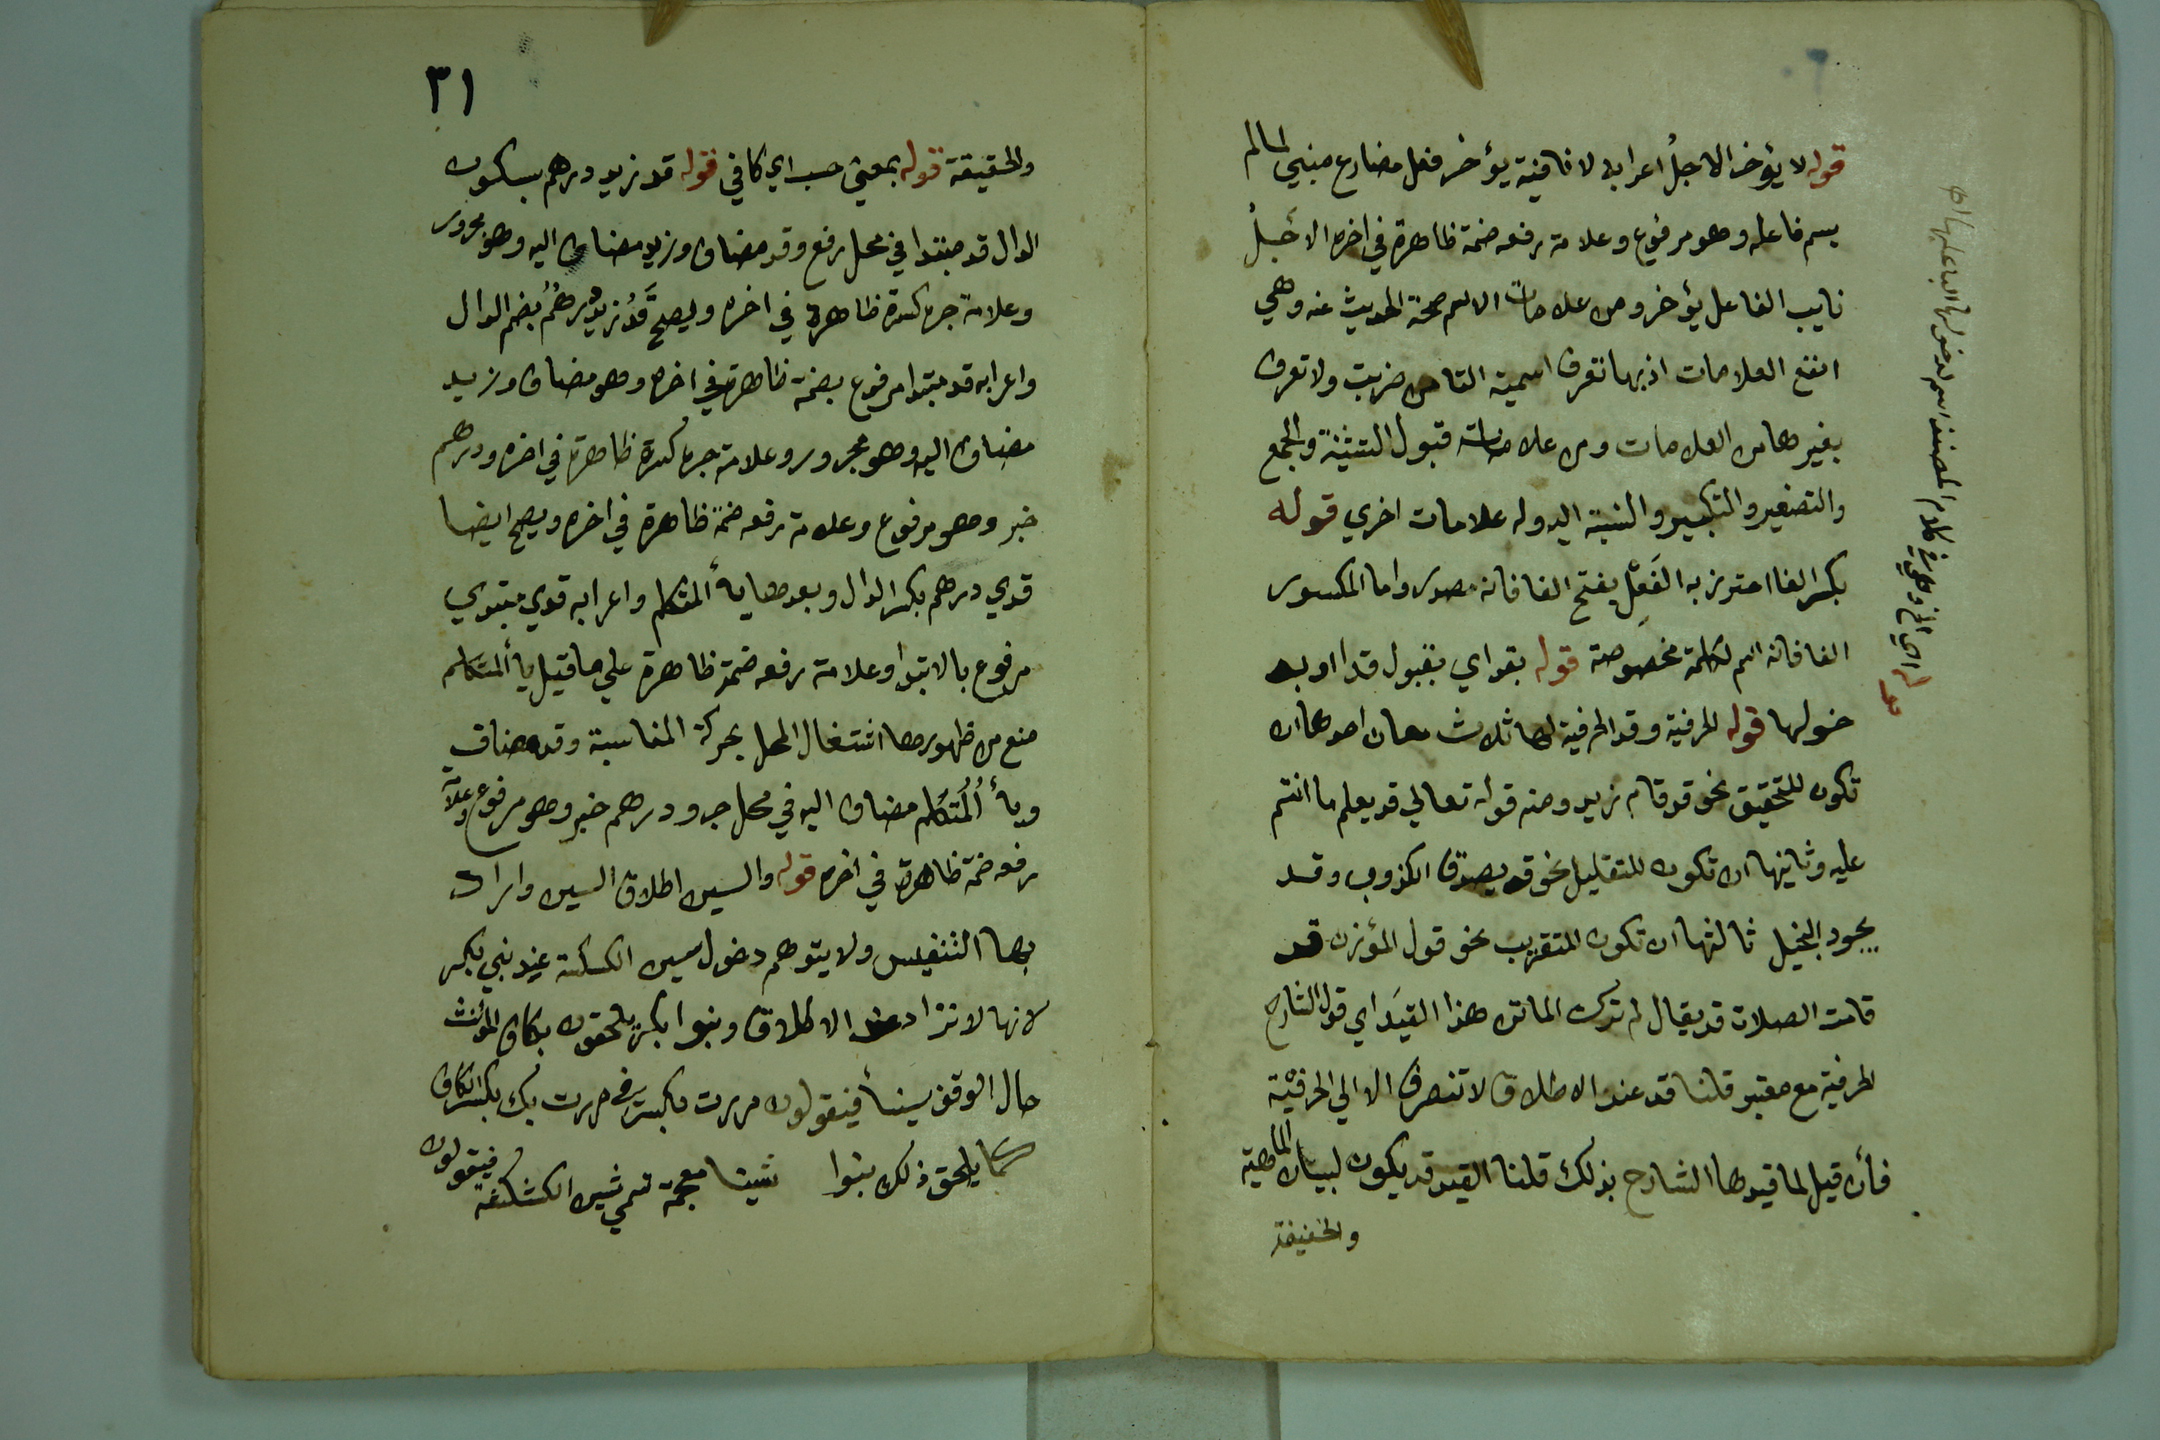 قوله لا يؤخر الاجلُ اعرابه لا نافية يؤخر فعل مضارع مبني لما لم
يسم فاعله وهو مرفوع وعلامة رفعه ضمة ظاهرة في اخره الاَجَلُ
نايب الفاعل يؤخر ومن علامات الاسم صحة الحديث عنه وهي
انفع العلامات اذ بها تعرف اسمية التا من ضربت ولا تعرف
بغيرها من العلامات ومن علاماته قبول التثنية والجمع
والتصغير والتكبير والنسبة اليه وله علامات اخري قوله
بكسر الفا احترز به الفَعِلْ بفتح الفا فانه مصدر واما المكسور
الفا فانه اسم لكلمة مخصوصة قوله بقد اي بقبول قد او بد
خولها قوله الحرفية وقد الحرفية لها ثلاث معان احدها ان
تكون للتحقيق نحو قد قام زيد ومنه قوله تعالي قد يعلم ما انتم
عليه وثانيها ان تكون للتقليل نحو قد يصدق الكذوب وقد
يجود البخيل ثالثها ان تكون التقريب نحو قول المؤذن قد
قامت الصلاة قد يقال لم ترك الماتن هذا القيد اي قول الشارح
الحرفية مع معتبر قلنا قد عند الاطلاق لا تنصرف الا الي الحرفيّة
فأن قيل لما قيدها الشارح بذلك قلنا القيد قد يكون لبيان الماهية
والحقيقة
في كلام المصنف اسم لدخول البا عليها اه
٣١
والحقيقة قوله بمعني حسب اي كافي قوله قد زيد درهم بسكون
الدال قد مبتدا في محل رفع وقد مضاف وزيد مضاف اليه وهو مجرور
وعلامة جره كسرة ظاهرة في اخره ويصح قَدُ زيدٍ درهمُ بضم الدال
واعرابه قد مبتدا مرفوع بضمة ظاهرة في اخره وهو مضاف وزيد
مضاف اليه وهو مجرور وعلامة جره كسرة ظاهرة في اخره ودرهم
خبر وهو مرفوع وعلامة رفعه ضمة ظاهرة في اخره ويصح ايضا
قدي درهم بكسر الدال وبعدها يأ المتكلم واعرابه قدي مبتدي
مرفوع بالابتدا وعلامة رفعه ضمة ظاهرة علي ما قبل يأ المتكلم
منع من ظهورها اشتغال المحل بحركة المناسبة وقد مضاف
ويأ اُلمُتكلم مضاف اليه في محل جر ودرهم خبر وهو مرفوع وعلامة
رفعه ضمة ظاهرة في اخره قوله والسين اطلاق السين واراد
بها التنفيس ولا يتوهم دخول سين الكسكسة عند بني بكر
لانها لا تزاد عند الاطلاق وبنوا بكر يلحقون بكاف المؤنث
حال الوقف سينأ فيقولون مررت بكس في مررت بك بكسر الكاف
كما يلحق ذلك بنوا شينا معجمة تسمي شين الكشكشة فيقولون